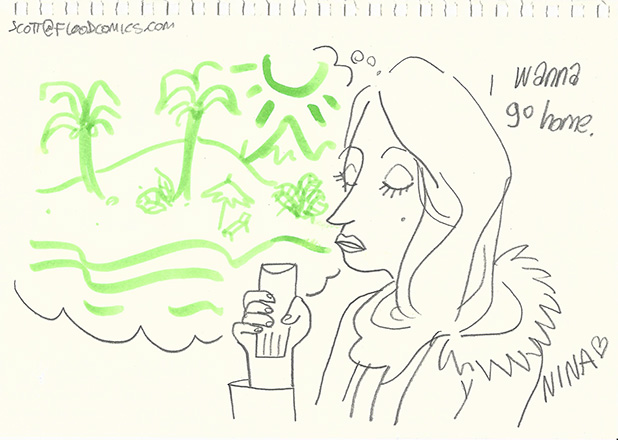 SCOTT@FLOODCOMICS.COM
I wanna
go home.
NINA♡